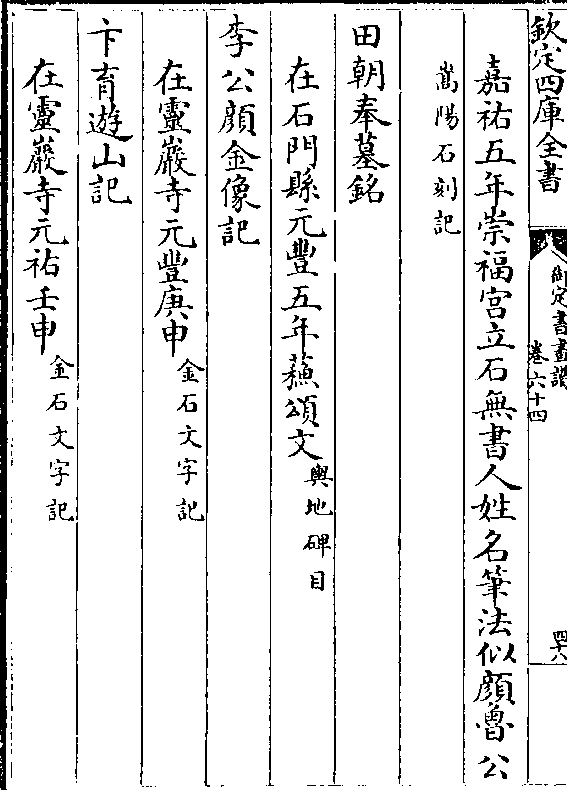 欽定四庫全書
御定書畫譜
卷六十四
四十八
嘉祐五年崇福宮立石無書人姓名筆法似顏魯公
嵩陽石刻記
田朝奉墓銘
在石門縣元豐五年蘓頌文輿地碑目
李公顏金像記
在靈巖寺元豐庚申金石文字記
卞育遊山記
在靈巖寺元祐壬申金石文字記